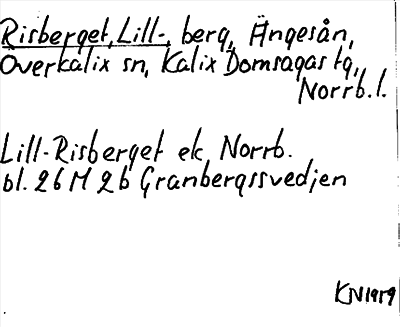 Risberget, Lill-, berg, Ängesån,
Överkalix sn, Kalix Domsagas tg,
Norrb. l.
Lill-Risberget ek, Norrb.
bl. 26 M 2b Granbergssvedjen
KN 1959